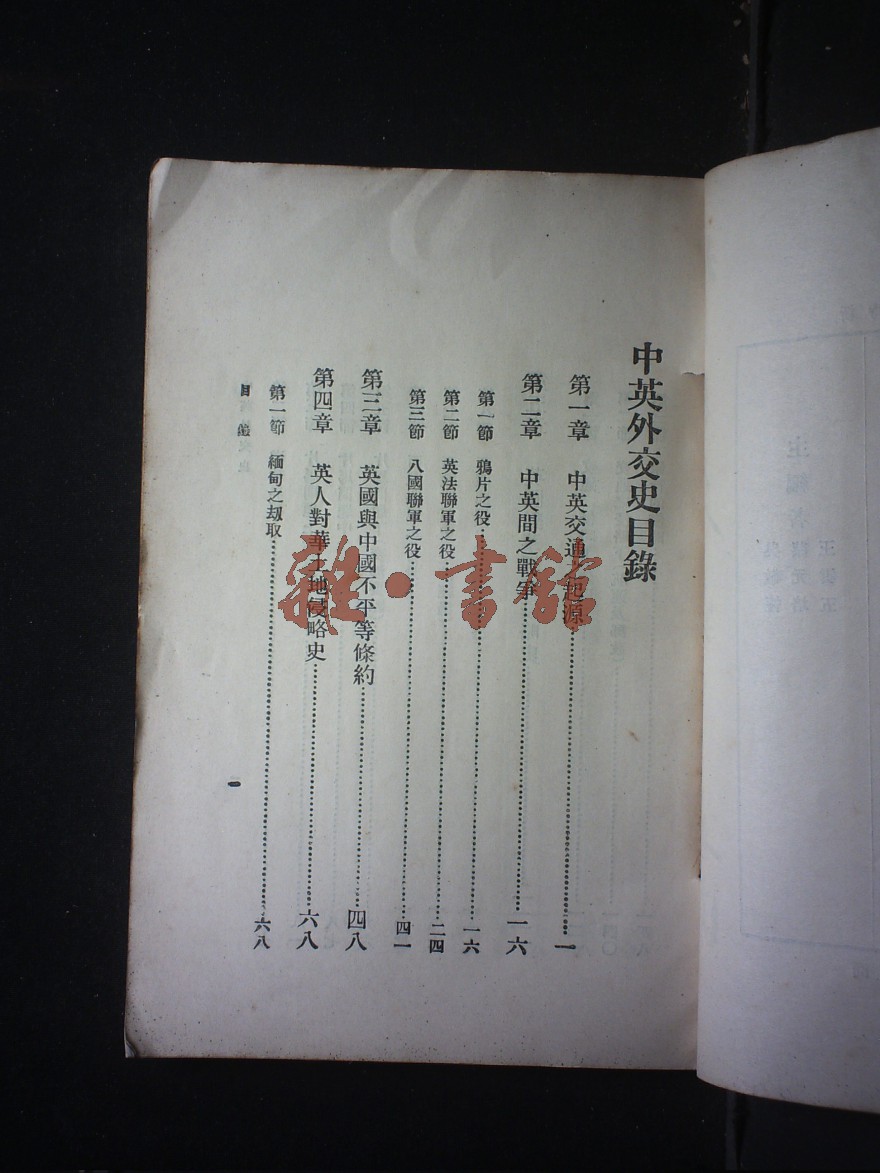 中英外交史目錄
第一章 中英交通之起源……一
第二章 中英間之戰爭……一六
第一節 鴉片之役……一六
第二節 英法聯軍之役……二四
第三節 八國聯軍之役……四一
第三章 英國與中國不平等條約……四八
第四章 英人對華土地侵略史……六八
第一節 緬甸之刼取……六八
目錄
一
雜·書館